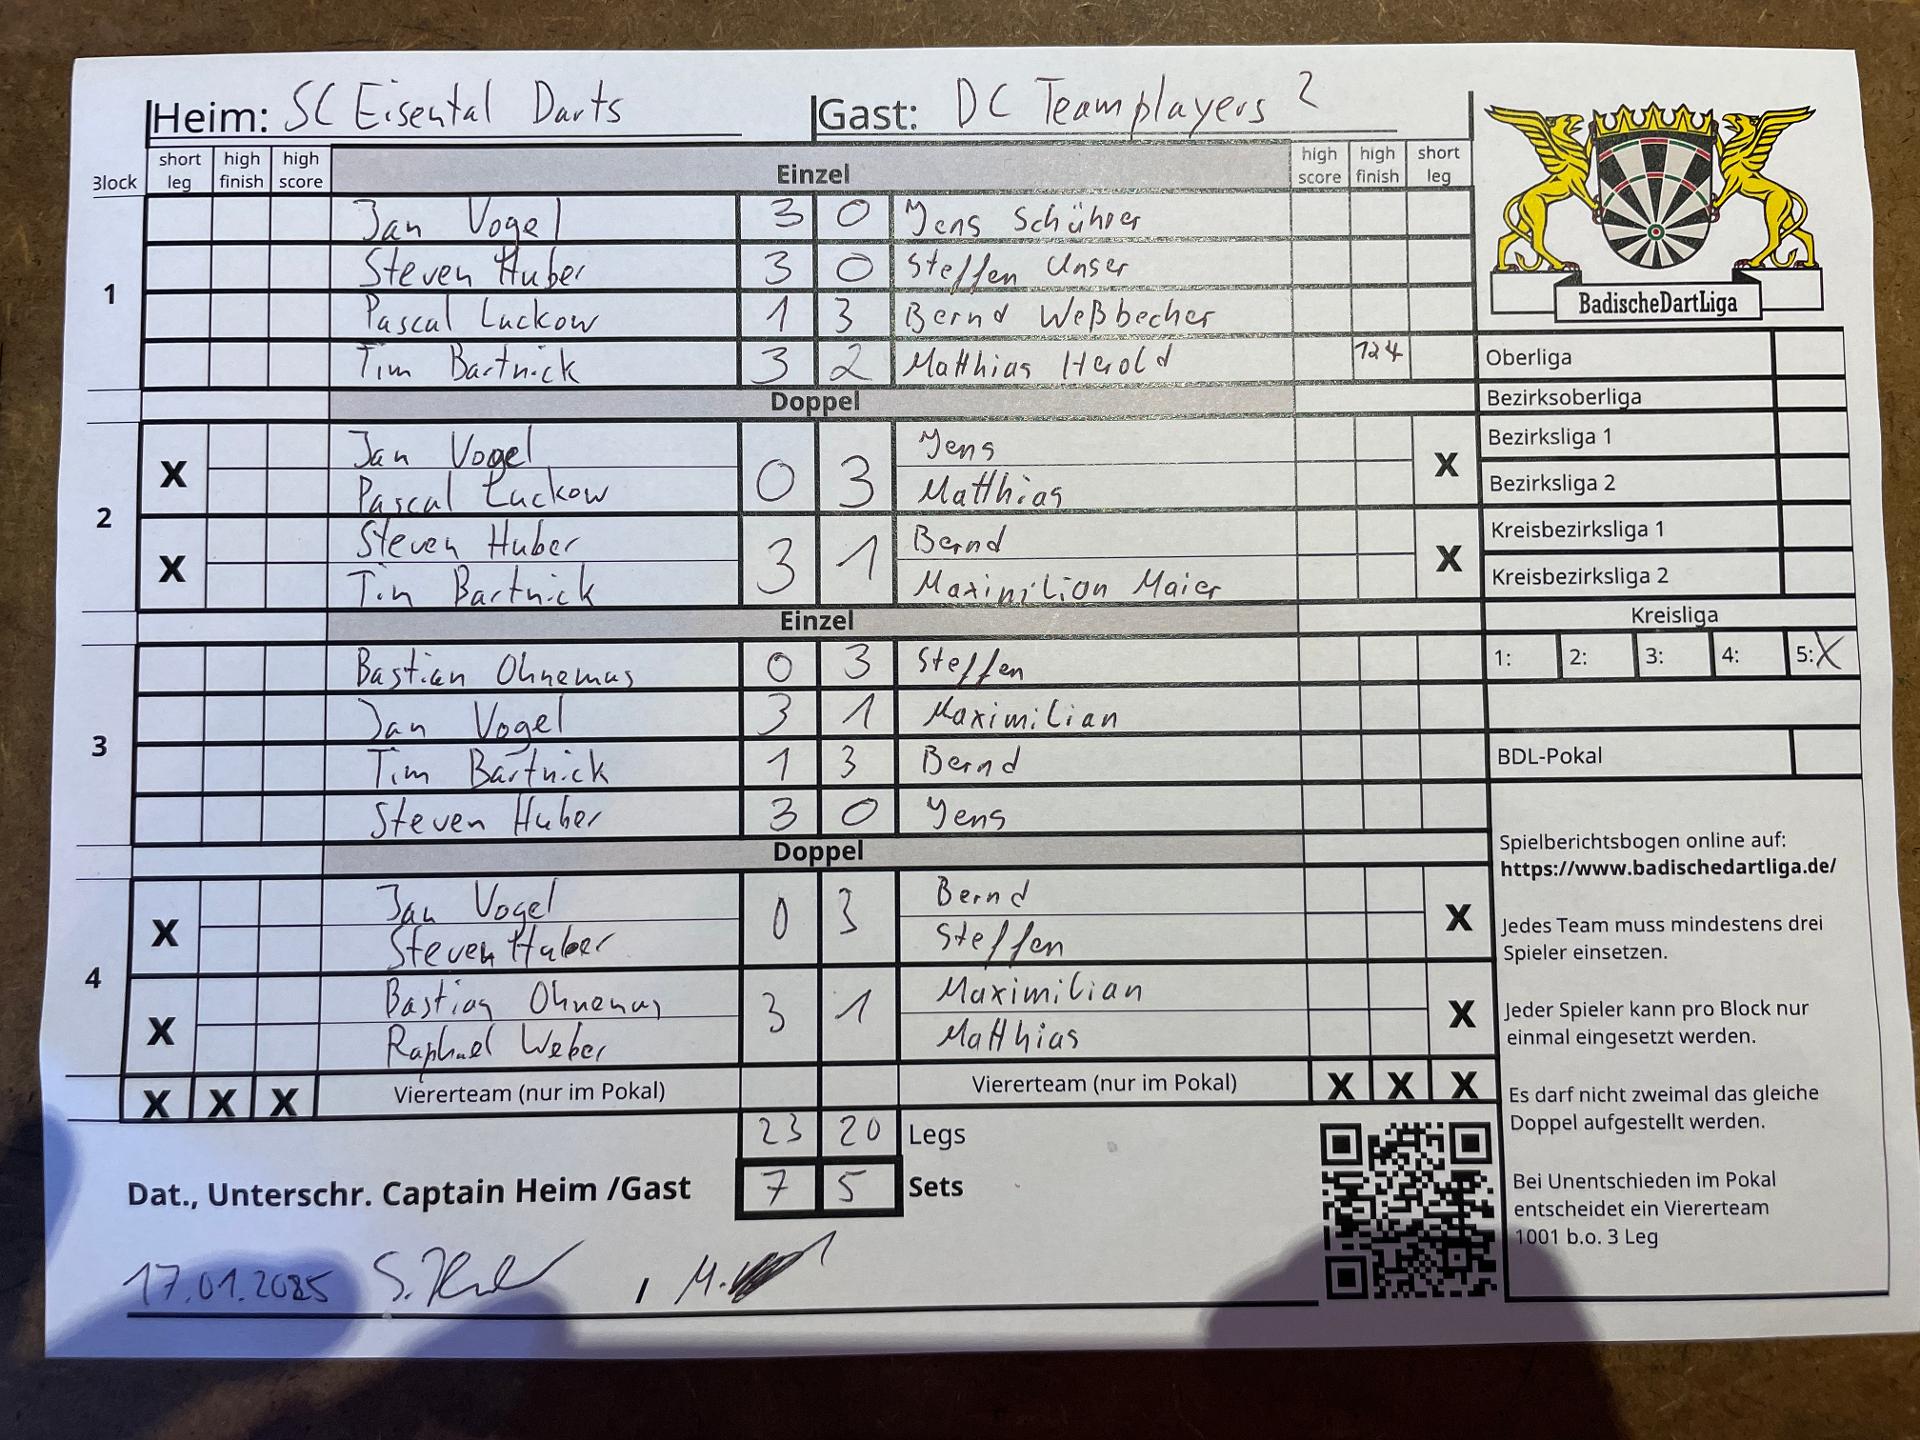 Heim: SC Eisental Darts Gast: DC Teamplayers 2
Block short leg high finish high score Einzel high score high finish short leg
1
Jan Vogel 3 0 Jens Schührer
Steven Huber 3 0 Steffen Unser
Pascal Luckow 1 3 Bernd Weßbecher
Tim Bartnick 3 2 Matthias Herold 124
Doppel
2
X Jan Vogel 0 3 Jens X
Pascal Luckow Matthias
X Steven Huber 3 1 Bernd X
Tim Bartnick Maximilian Maier
Einzel
3
Bastian Ohnemus 0 3 Steffen
Jan Vogel 3 1 Maximilian
Tim Bartnick 1 3 Bernd
Steven Huber 3 0 Jens
Doppel
4
X Jan Vogel 0 3 Bernd X
Steven Huber Steffen
X Bastian Ohnemus 3 1 Maximilian X
Raphael Weber Matthias
X X X Viererteam (nur im Pokal) Viererteam (nur im Pokal) X X X
23 20 Legs
Dat., Unterschr. Captain Heim /Gast 7 5 Sets
17.01.2025
BadischeDartLiga
Oberliga
Bezirksoberliga
Bezirksliga 1
Bezirksliga 2
Kreisbezirksliga 1
Kreisbezirksliga 2
Kreisliga
1: 2: 3: 4: 5: X
BDL-Pokal
Spielberichtsbogen online auf:
https://www.badischedartliga.de/
Jedes Team muss mindestens drei
Spieler einsetzen.
Jeder Spieler kann pro Block nur
einmal eingesetzt werden.
Es darf nicht zweimal das gleiche
Doppel aufgestellt werden.
Bei Unentschieden im Pokal
entscheidet ein Viererteam
1001 b.o. 3 Leg